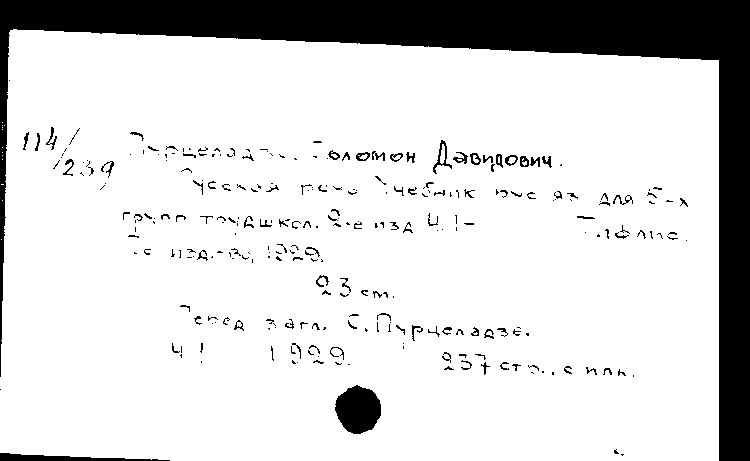 114/239 Пурцеладзе, Соломон Давидович.
Русская речь Учебник рус яз для 5-х
групп трудшкол. 2-е изд Ч. 1- Тифлис.
Гос изд-во, 1929.
23 см.
Перед загл. С. Пурцеладзе.
Ч 1 1929. 237 стр., с илл.